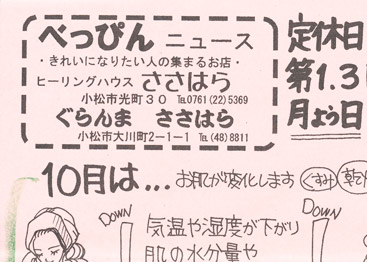 べっぴん ニュース
・きれいになりたい人の集まるお店・
ヒーリングハウス ささはら
小松市光町30 ℡0761(22)5369
ぐらんま ささはら
小松市大川町2-1-1 ℡(48)8811
定休日
第1.3
月よう日
10月は...
お肌が変化します くすみ 乾
DOWN
気温や湿度が下がり
肌の水分量や
DOWN